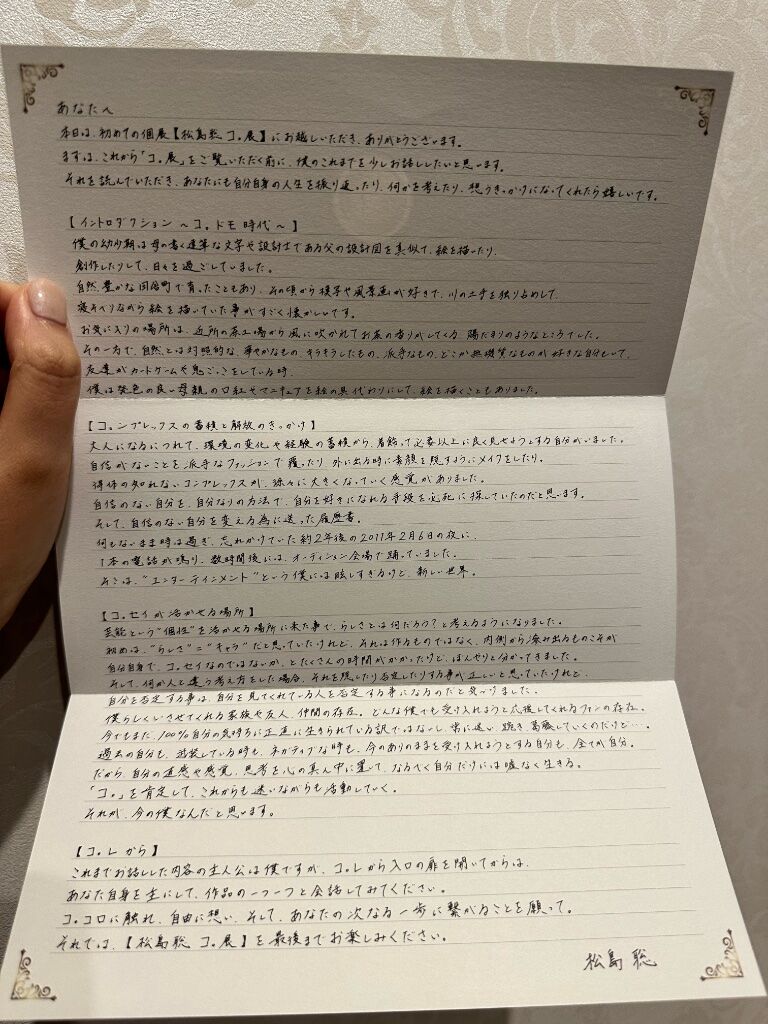 あなたへ
本日は、初めての個展【松島聡 コ。展】にお越しいただき、ありがとうございます。
まずは、これから「コ。展」をご覧いただく前に、僕のこれまでを少しお話ししたいと思います。
それを読んでいただき、あなたにも自分自身の人生を振り返ったり、何かを考えたり、想うきっかけになってくれたら嬉しいです。
【イントロダクション ～コ。ドモ時代～】
僕の幼少期は母の書く達筆な文字や設計士である父の設計図を真似て、絵を描いたり、
創作したりして、日々を過ごしていました。
自然豊かな田舎町で育ったこともあり、その頃から模写や風景画が好きで、川の土手を独り占めして、
寝そべりながら絵を描いていた事がすごく懐かしいです。
お気に入りの場所は、近所の茶工場から風に吹かれてお茶の香りがしてくる、陽だまりのようなところでした。
その一方で、自然とは対照的な、華やかなもの、キラキラしたもの、派手なもの、どこか無機質なものが好きな自分もいて、
友達がカードゲームや鬼ごっこをしている時、
僕は発色の良い母親の口紅やマニキュアを絵の具代わりにして、絵を描くこともありました。
【コ。ンプレックスの蓄積と解放のきっかけ】
大人になるにつれて、環境の変化や経験の蓄積から、着飾って必要以上に良く見せようとする自分がいました。
自信がないことを派手なファッションで覆ったり、外に出る時に素顔を隠すようにメイクをしたり。
得体の知れないコンプレックスが、徐々に大きくなっていく感覚がありました。
自信のない自分を、自分なりの方法で、自分を好きになれる手段を必死に探していたのだと思います。
そして、自信のない自分を変える為に送った履歴書。
何もないまま時は過ぎ、忘れかけていた約2年後の2011年2月6日の夜に、
1本の電話が鳴り、数時間後には、オーディション会場で踊っていました。
そこは、"エンターテインメント"という僕には眩しすぎるけど、新しい世界。
【コ。セイが活かせる場所】
芸能という"個性"を活かせる場所に来た事で、らしさとは何だろう?と考えるようになりました。
初めは、"らしさ"="キャラ"だと思っていたけれど、それは作るものではなく、内側から滲み出るものこそが
自分自身で、コ。セイなのではないか、とたくさんの時間がかかったけど、ぼんやりと分かってきました。
そして、何か人と違う考え方をした場合、それを隠したり否定したりする事が正しいと思っていたけれど、
自分を否定する事は、自分を見てくれている人を否定する事になるのだと気づけました。
僕らしくいさせてくれる家族や友人、仲間の存在。どんな僕でも受け入れようと応援してくれるファンの存在。
今でもまだ、100%自分の気持ちに正直に生きられている訳ではないし、常に迷い、躓き、葛藤していくのだけど…。
過去の自分も、武装している時も、ネガティブな時も、今のありのままを受け入れようとする自分も、全てが自分。
だから、自分の直感や感覚、思考を心の真ん中に置いて、なるべく自分だけには嘘なく生きる。
「コ。」を肯定して、これからも迷いながらも活動していく。
それが、今の僕なんだと思います。
【コ。レから】
これまでお話しした内容の主人公は僕ですが、コ。レから入口の扉を開いてからは、
あなた自身を主にして、作品の一つ一つと会話してみてください。
コ。コロに触れ、自由に想い、そして、あなたの次なる一歩に繋がることを願って。
それでは、【松島聡 コ。展】を最後までお楽しみください。
松島 聡